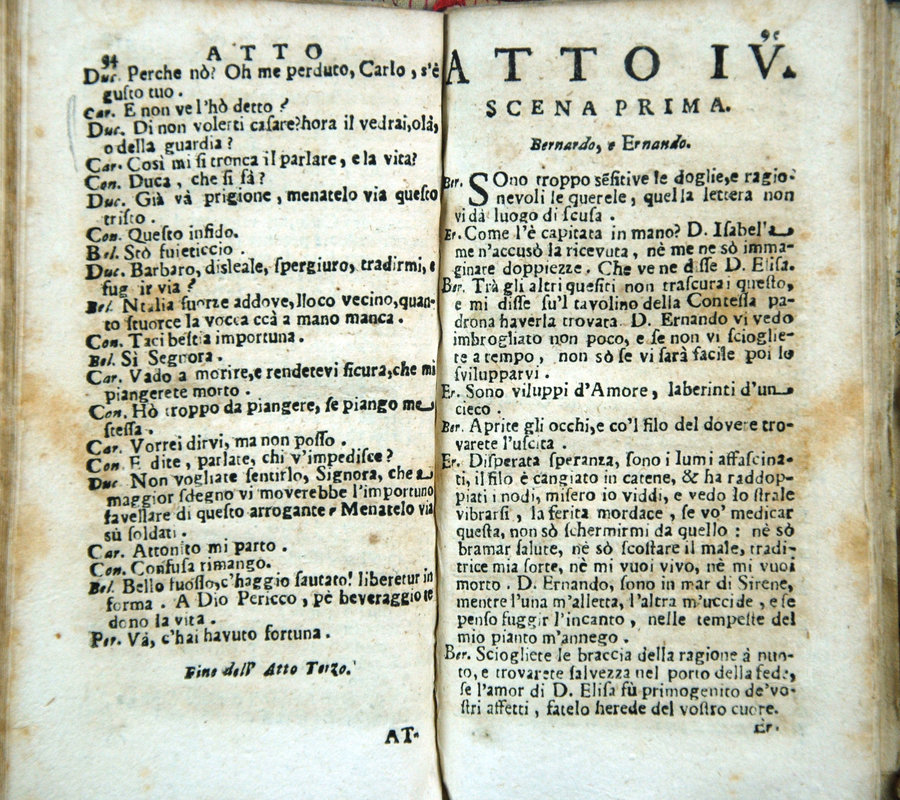 94 ATTO
Duc. Perche nò? Oh me perduto, Carlo, s'è
gusto tuo.
Car. E non ve l'hò detto?
Duc. Di non volerti casare? hora il vedrai, olà,
o della guardia?
Car. Così mi si tronca il parlare, e la vita?
Con. Duca, che si fà?
Duc. Già và prigione, menatelo via questo
tristo.
Con. Questo infido.
Bel. Stò fuieticcio.
Duc. Barbaro, disleale, spergiuro, tradirmi, e
fuggir via?
Bel. Ntalia fuorze addove, lloco vecino, quan-
to stuorce la vocca ccà a mano manca.
Con. Taci bestia importuna.
Bel. Sì Segnora.
Car. Vado a morire, e rendetevi sicura, che mi
piangerete morto.
Con. Hò troppo da piangere, se piango me
stessa.
Car. Vorrei dirvi, ma non posso.
Con. E dite, parlate, chi v'impedisce?
Duc. Non vogliate sentirlo, Signora, che a
maggior sdegno vi moverebbe l'importuno
favellare di questo arrogante. Menatelo via
sù soldati.
Car. Attonito mi parto.
Con. Confusa rimango.
Bel. Bello fuosso, c'haggio sautato! liberetur in
forma. A Dio Pericco, pè beveraggio te
dono la vita.
Per. Và, c'hai havuto fortuna.
Fine dell' Atto Terzo.
AT-
95
ATTO IV.
SCENA PRIMA.
Bernardo, e Ernando.
Ber. SOno troppo sẽsitive le doglie, e ragio-
nevoli le querele, quella lettera non
vi dà luogo di scusa.
Er. Come l'è capitata in mano? D. Isabella
me n'accusò la ricevuta, nè me ne sò imma-
ginare doppiezze. Che ve ne disse D. Elisa.
Ber. Trà gli altri quesiti non trascurai questo,
e mi disse su'l tavolino della Contessa pa-
drona haverla trovata. D. Ernando vi vedo
imbrogliato non poco, e se non vi scioglie-
te a tempo, non sò se vi sarà facile poi lo
svilupparvi.
Er. Sono viluppi d'Amore, laberinti d'un
cieco.
Ber. Aprite gli occhi, e co'l filo del dovere tro-
varete l'uscita.
Er. Disperata speranza, sono i lumi affascina-
ti, il filo è cangiato in catene, & ha raddop-
piati i nodi, misero io viddi, e vedo lo strale
vibrarsi, la ferita mordace, se vo' medicar
questa, non sò schermirmi da quello: nè sò
bramar salute, nè sò scostare il male, tradi-
trice mia sorte, nè mi vuoi vivo, nè mi vuoi
morto. D. Ernando, sono in mar di Sirene,
mentre l'una m'alletta, l'altra m'uccide, e se
penso fuggir l'incanto, nelle tempeste del
mio pianto m'annego.
Ber. Sciogliete le braccia della ragione à nuo-
to, e trovarete salvezza nel porto della fede,
se l'amor di D. Elisa fù primogenito de' vo-
stri affetti, fatelo herede del vostro cuore.
Er.